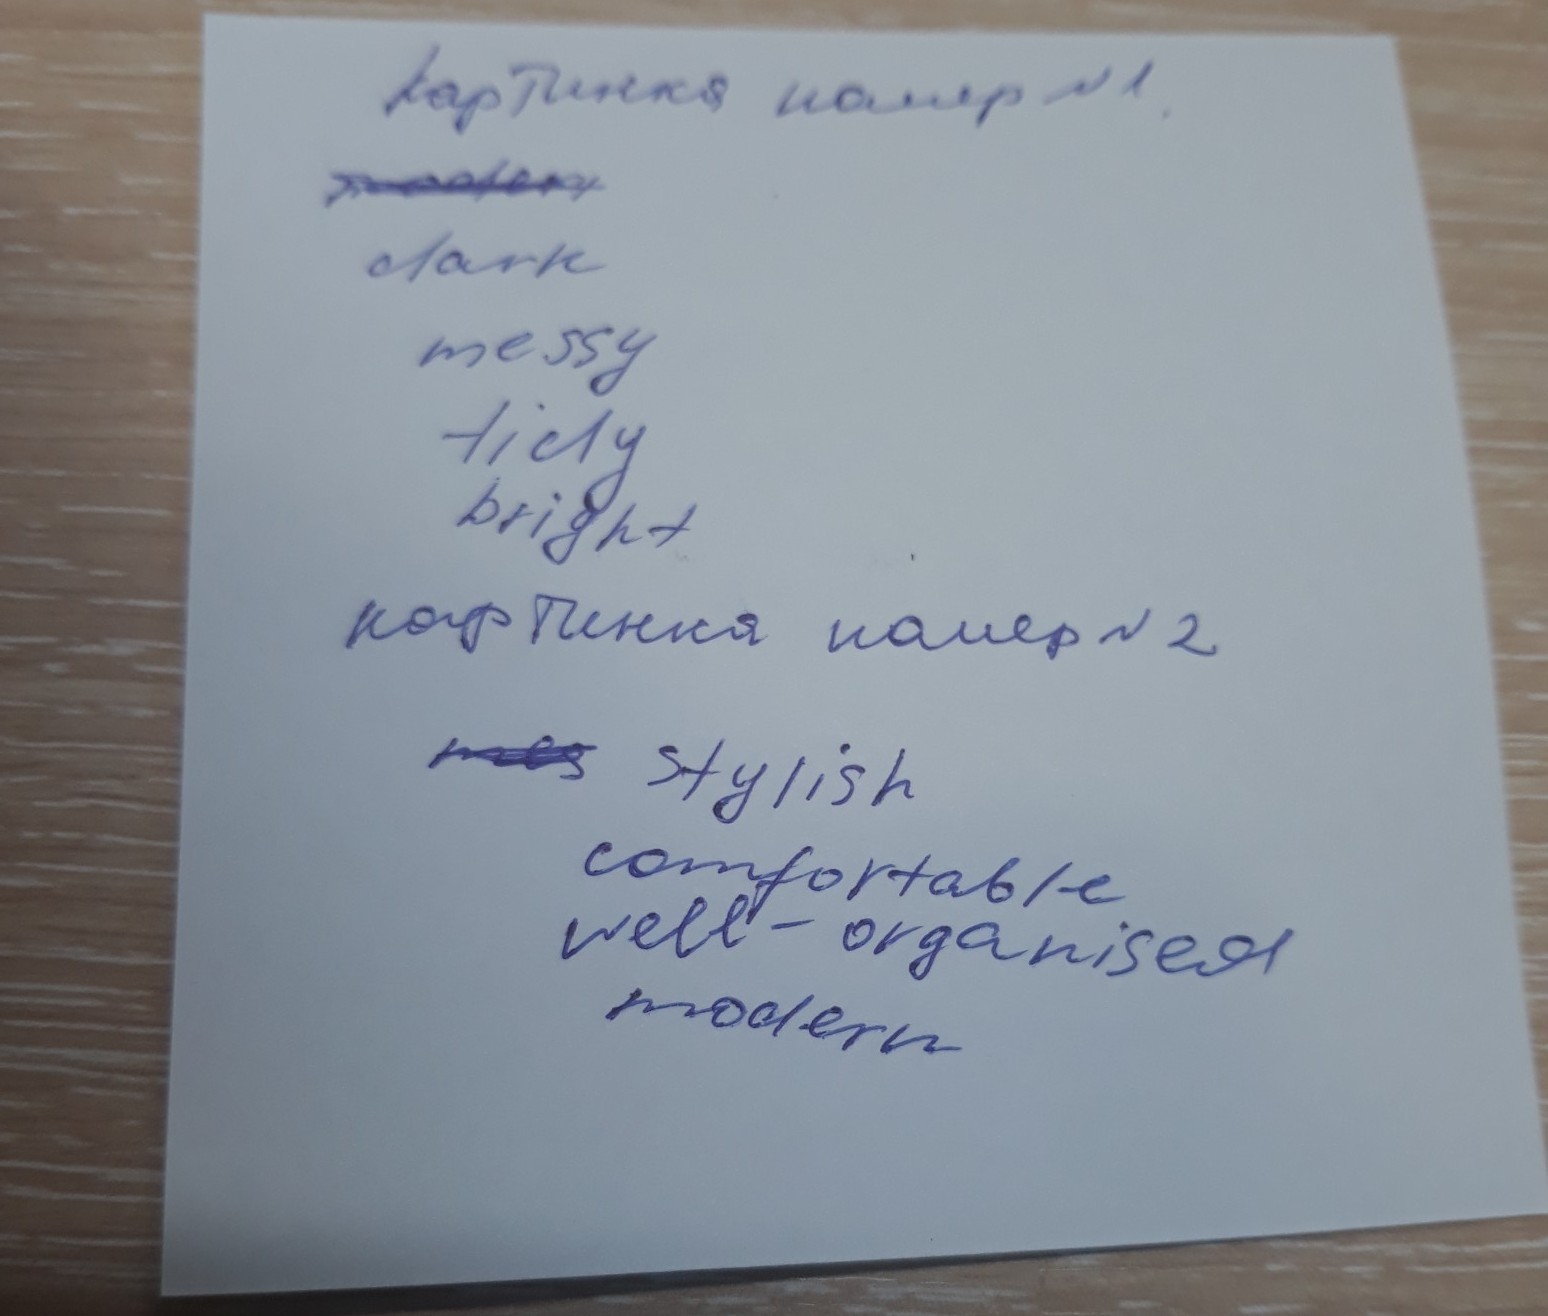 картинка намер №1.
dark
messy
tidy
bright
картинка намер №2
stylish
comfortable
well-organised
modern